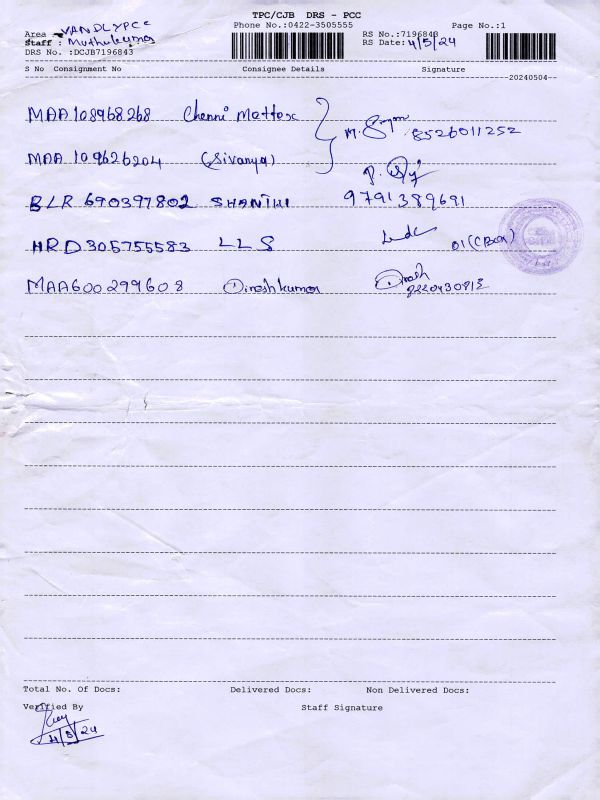 TPC/CJB DRS - PCC
Phone No.:0422-3505555
Page No.:1
Area : VANDLYPCC
Staff : Muthukumar
DRS No. :DCJB7196843
RS No.:7196843
RS Date: 4/5/24
S No Consignment No Consignee Details Signature
20240504
MAA 108968268 Chenni Mattox
8526011252
MAA 109626204 (Sivanya)
BLR 690397802 SHANTHI 9791389691
HRD 305755583 LLS
MAA600299608 Dineshkumar
Total No. Of Docs: Delivered Docs: Non Delivered Docs:
Verified By Staff Signature
4/5/24